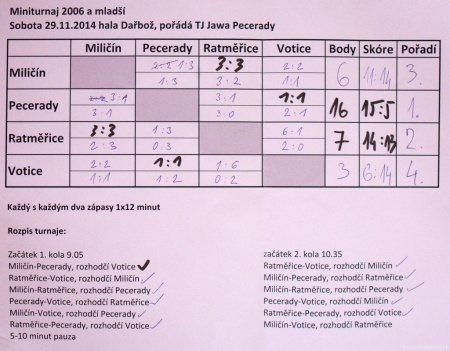 Miniturnaj 2006 a mladší
Sobota 29.11.2014 hala Dařbož, pořádá TJ Jawa Pecerady
Miličín Pecerady Ratměřice Votice Body Skóre Pořadí
Miličín 1:3 3:3 2:2 6 11:14 3.
1:3 3:2 1:1
Pecerady 3:1 3:1 1:1 16 15:5 1.
3:1 3:0 2:1
Ratměřice 3:3 1:3 6:1 7 14:13 2.
2:3 0:3 2:0
Votice 2:2 1:1 1:6 3 6:14 4.
1:1 1:2 0:2
Každý s každým dva zápasy 1x12 minut
Rozpis turnaje:
Začátek 1. kola 9.05
Miličín-Pecerady, rozhodčí Votice
Ratměřice-Votice, rozhodčí Miličín
Miličín-Ratměřice, rozhodčí Pecerady
Pecerady-Votice, rozhodčí Ratměřice
Miličín-Votice, rozhodčí Pecerady
Ratměřice-Pecerady, rozhodčí Votice
5-10 minut pauza
začátek 2. kola 10.35
Ratměřice-Votice, rozhodčí Miličín
Miličín-Pecerady, rozhodčí Ratměřice
Miličín-Ratměřice, rozhodčí Votice
Pecerady-Votice, rozhodčí Miličín
Ratměřice-Pecerady, rozhodčí Votice
Miličín-Votice, rozhodčí Ratměřice